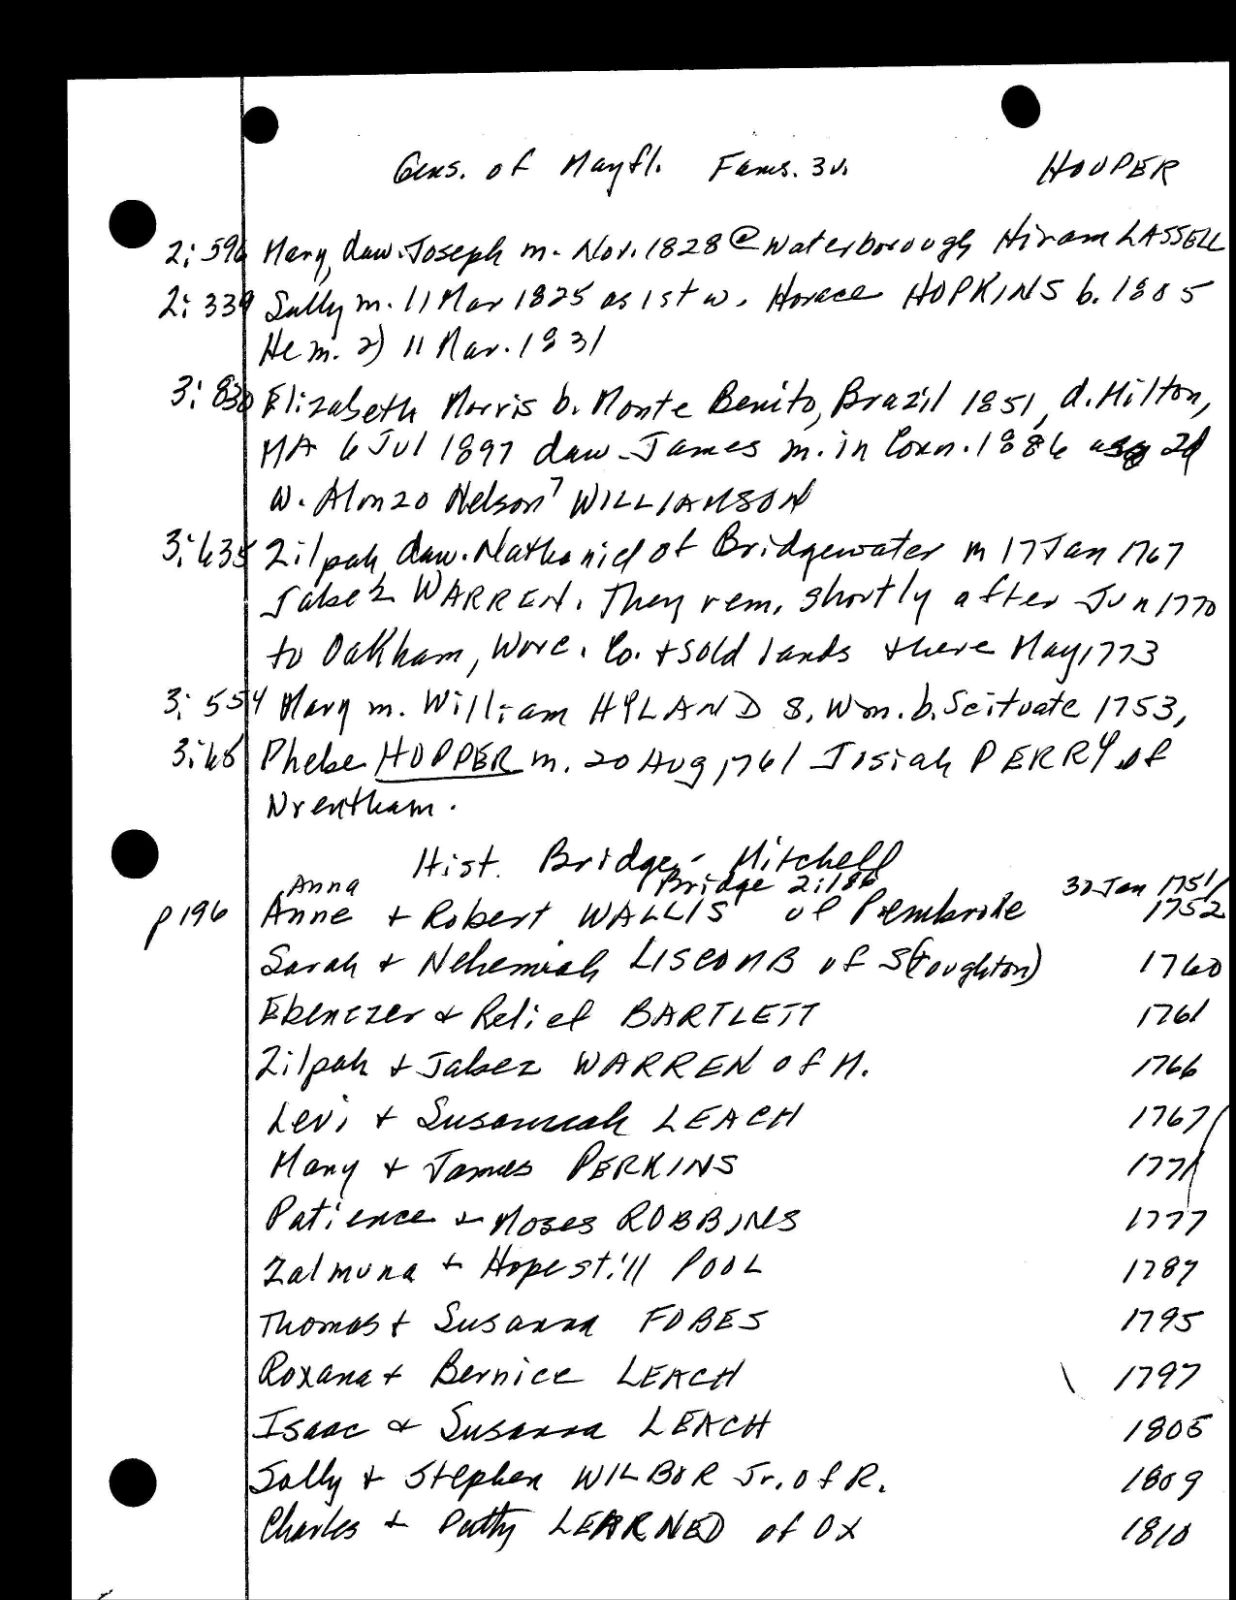 Gens. of Mayfl. Fams. 3v. HOOPER
2: 596 Mary, daw. Joseph m. Nov. 1828 @ Waterborough Hiram LASSELL
2: 339 Sally m. 11 Mar 1825 as 1st w. Horace HOPKINS b. 1805
He m. 2) 11 Mar. 1831
3: 830 Elizabeth Morris b. Monte Benito, Brazil 1851, d. Milton,
MA 6 Jul 1897 daw. James m. in Conn. 1886 as 2d
w. Alonzo Nelson⁷ WILLIAMSON
3: 635 Zilpah daw. Nathaniel of Bridgewater m 17 Jan 1767
Jabez WARREN. They rem. shortly after Jun 1770
to Oakham, Worc. Co. + sold lands there May 1773
3: 554 Mary m. William HYLAND s. Wm. b. Scituate 1753,
3: 65 Phebe HOPPER m. 20 Aug 1761 Josiah PERRY of
Wrentham.
Hist. Bridge. - Mitchell
Anna Bridge 2:186 30 Jan 1751/
p 196 Anne + Robert WALLIS of Pembroke 1752
Sarah + Nehemiah LISCOMB of St(oughton) 1760
Ebenezer + Relief BARTLETT 1761
Zilpah + Jabez WARREN of M. 1766
Levi + Susannah LEACH 1767
Mary + James PERKINS 1771
Patience + Moses ROBBINS 1777
Zalmuna + Hopestill POOL 1787
Thomas + Susanna FOBES 1795
Roxana + Bernice LEACH 1797
Isaac + Susanna LEACH 1805
Sally + Stephen WILBOR Jr. of R. 1809
Charles + Patty LEARNED of Ox 1810